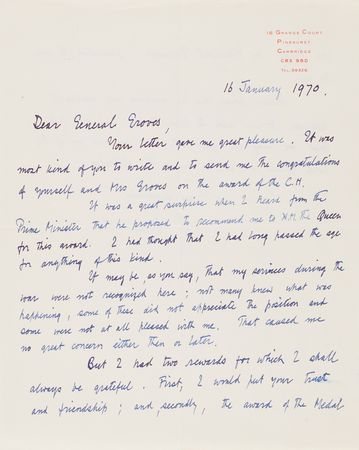 16 GRANGE COURT
PINEHURST,
CAMBRIDGE
CB3 9BD
TEL. 59326
16 January 1970.
Dear General Groves,
Your letter gave me great pleasure. It was
most kind of you to write and to send me the congratulations
of yourself and Mrs Groves on the award of the C.H.
It was a great surprise when I heard from the
Prime Minister that he proposed to recommend me to H.M. the Queen
for this award. I had thought that I had long passed the age
for anything of this kind.
It may be, as you say, that my services during the
war were not recognized here; not many knew what was
happening, some of these did not appreciate the position and
some were not at all pleased with me. That caused me
no great concern either then or later.
But I had two rewards for which I shall
always be grateful. First, I would put your trust
and friendship; and, secondly, the award of the Medal